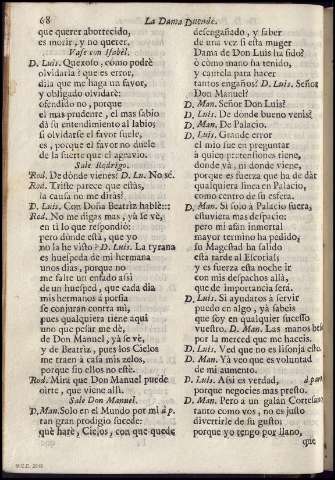 68
La Dama Duende.
que querer aborrecido,
es morir, y no querer.
Vase con Isabèl.
D. Luis. Quexoso, como podrè
olvidarla? que es error,
dila que me haga un favor,
y obligado olvidarè:
ofendido no, porque
el mas prudente, el mas sabio
dà su entendimiento al labio;
si olvidarse el favor suele,
es, porque el favor no duele
de la suerte que el agravio.
Sale Rodrigo.
Rod. De dònde vienes? D. Lu. No sé.
Rod. Triste parece que estàs,
la causa no me diràs?
D. Luis. Con Doña Beatriz hablè:::
Rod. No me digas mas, yà se vè,
en ti lo que respondió:
pero dònde està, que yo
no la he visto? D. Luis. La tyrana
es huespeda de mi hermana
unos dias, porque no
me falte un enfado assi
de un huesped, que cada dia
mis hermanos à porfia
se conjuran contra mì;
pues qualquiera tiene aqui
uno que pesar me dè,
de Don Manuel, yà se vè,
y de Beatriz, pues los Cielos
me traen à casa mis zelos,
porque sin ellos no estè.
Rod. Mira que Don Manuel puede
oirte, que viene alli.
Sale Don Manuel.
D. Man. Solo en el Mundo por mi à p.
tan gran prodigio sucede:
què harè, Cielos, con que quede
desengañado, y saber
de una vez si esta muger
Dama de Don Luis ha sido?
ò còmo mano ha tenido,
y cautela para hacer
tantos engaños? D. Luis. Señor
Don Manuel?
D. Man. Señor Don Luis?
D. Luis. De dònde bueno venìs?
D. Man. De Palacio.
D. Luis. Grande error
el mio fue en preguntar
à quien pretensiones tiene,
donde và, ni donde viene,
porque es fuerza que ha de dàr
qualquiera linea en Palacio,
como centro de su esfera.
D. Man. Si solo à Palacio fuera,
estuviera mas despacio;
pero mi afan inmortal
mayor termino ha pedido,
su Magestad ha salido
esta tarde al Escorial;
y es fuerza esta noche ir
con mis despachos allà,
que de importancia serà.
D. Luis. Si ayudaros à servir
puedo en algo, yà sabeis
que soy en qualquier sucesso
vuestro. D. Man. Las manos beso
por la merced que me haceis.
D. Luis. Ved que no es lisonja esto.
D. Man. Yà veo que es voluntad
de mi aumento.
D. Luis. Assi es verdad, à part.
porque negocies mas presto.
D. Man. Pero à un galàn Cortesano
tanto como vos, no es justo
divertirle de su gusto;
porque yo tengo por llano,
que